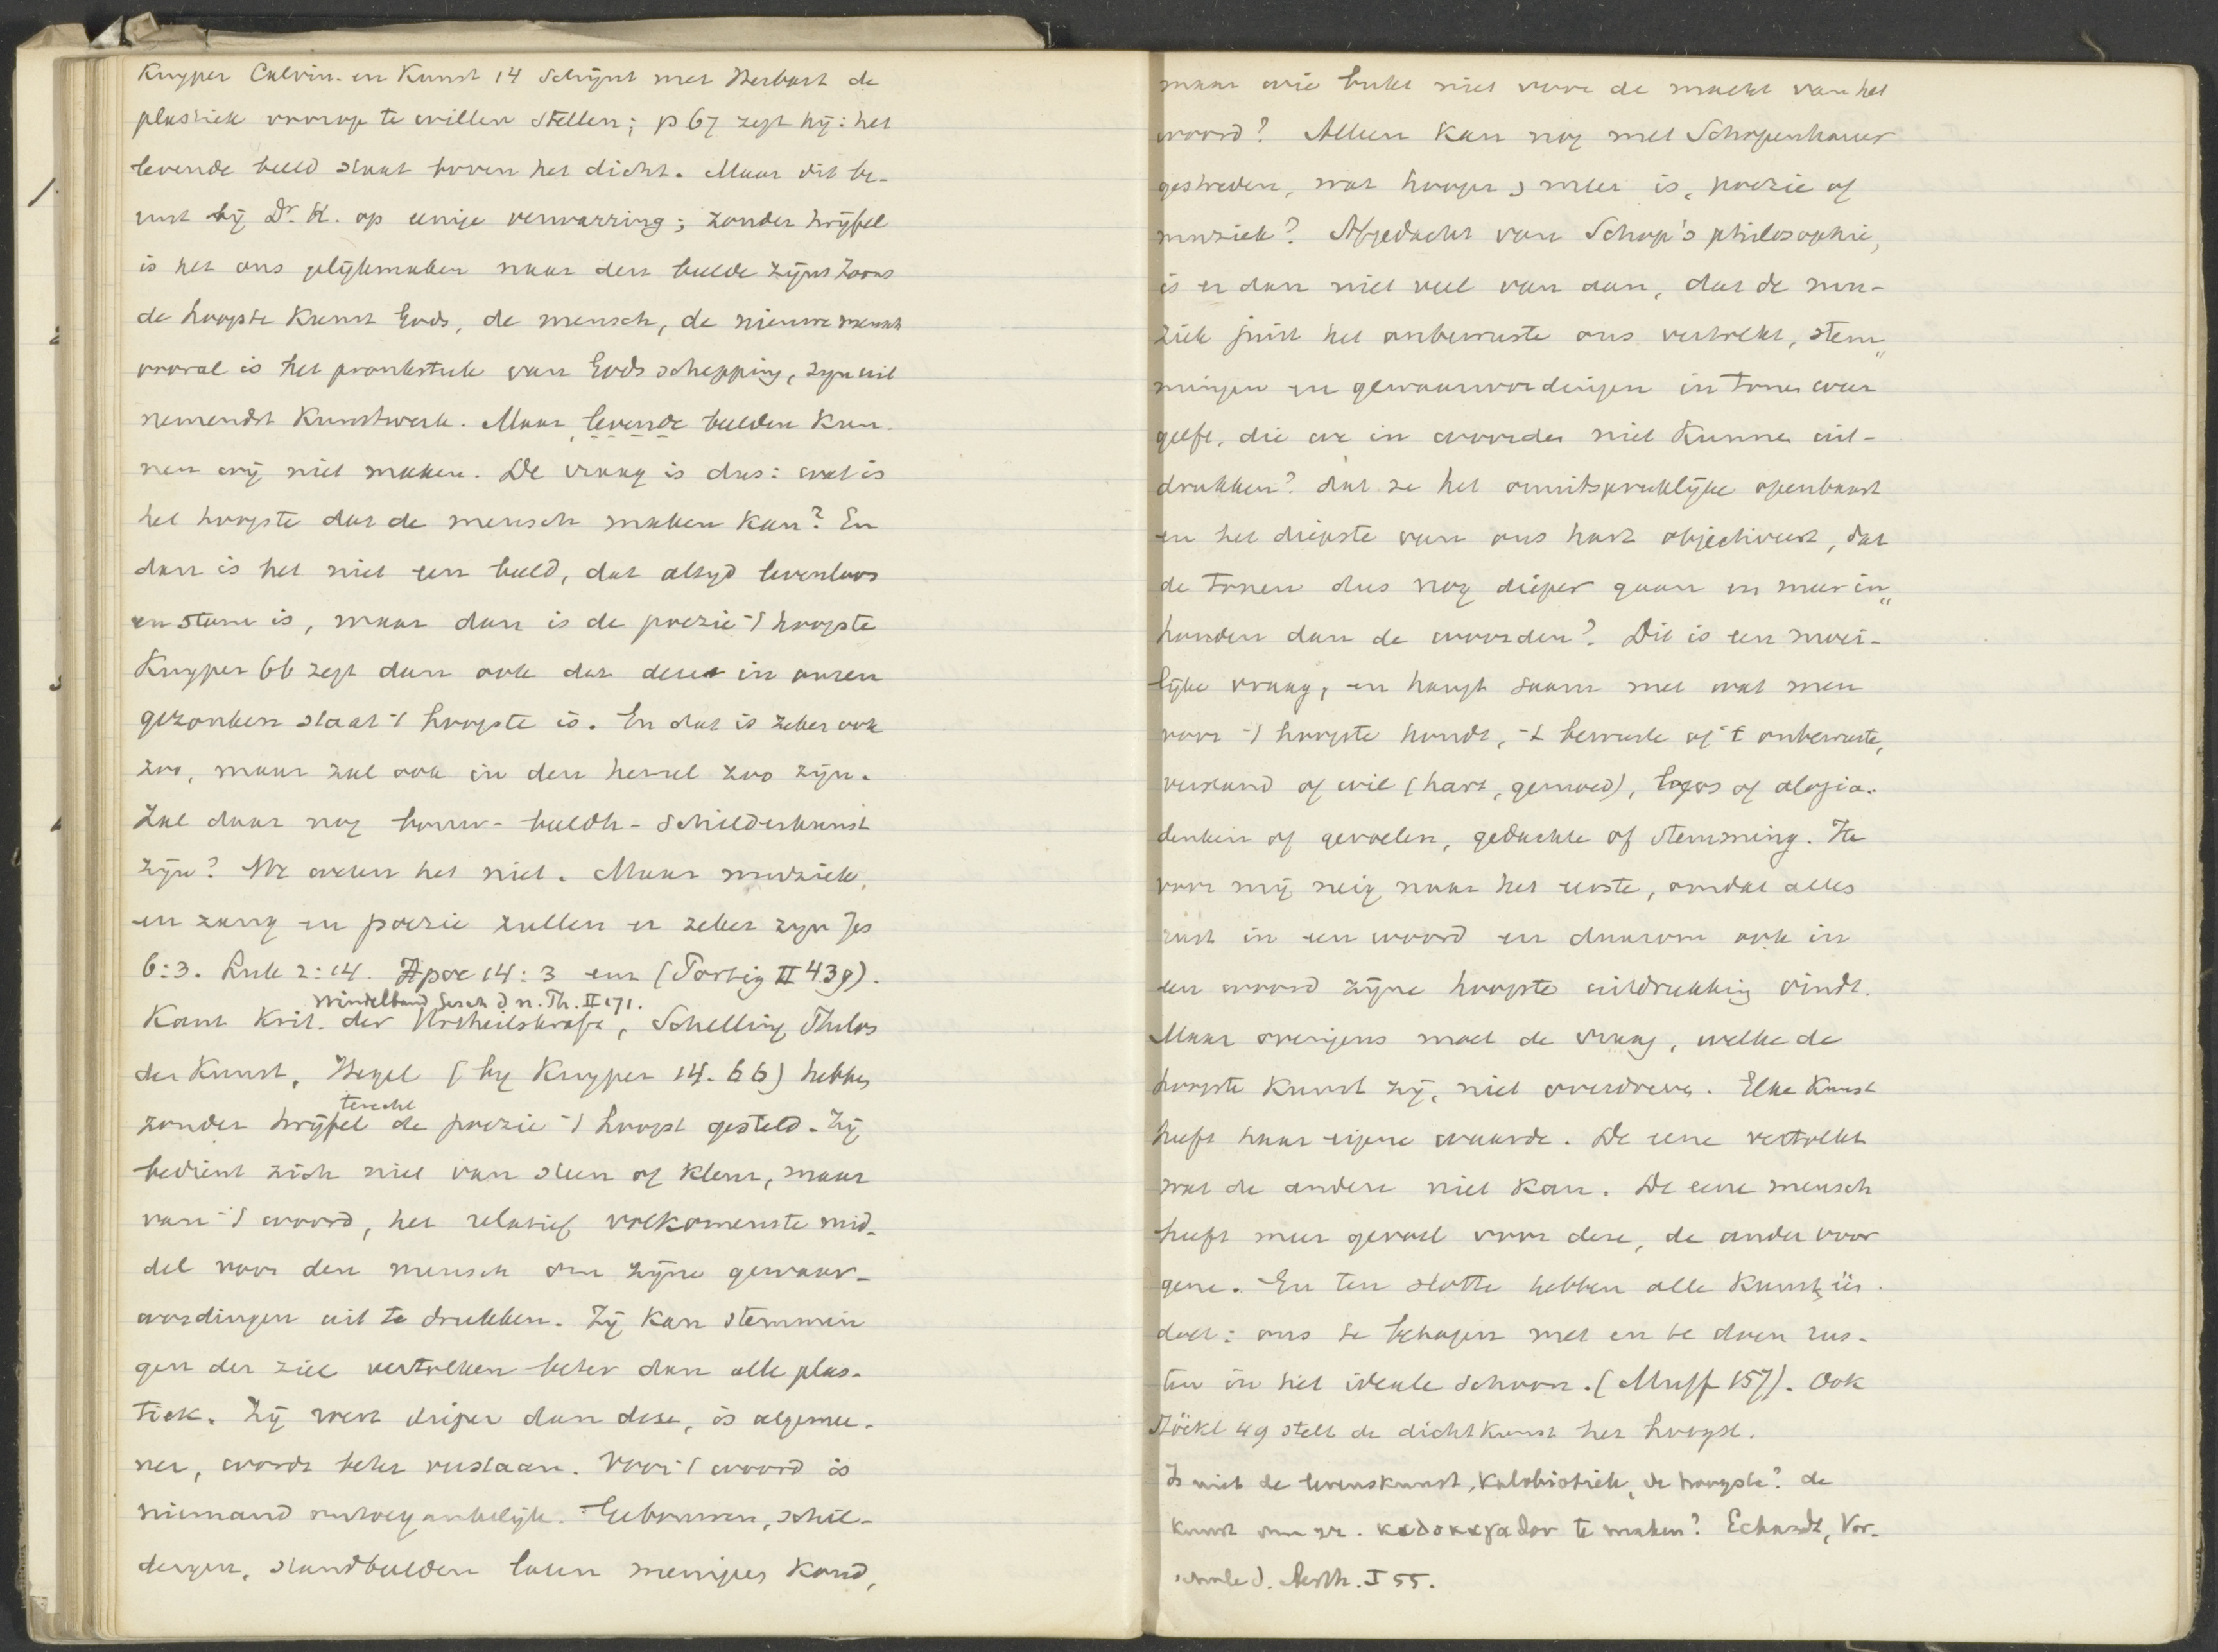 Kuyper Calvin. en Kunst 14 schijnt met Herbart de
plastiek voorop te willen stellen; p 67 zegt hij: het
levende beeld staat boven het dicht. Maar dit be-
rust bij Dr. K. op eenige verwarring; zonder twijfel
is het ons gelijkmaken naar den beelde zijns Zoons
de hoogste Kunst Gods, de mensch, de nieuwe mensch
vooral is het pronkstuk van Gods schepping, zijn uit
nemendst Kunstwerk. Maar levende beelden kun-
nen wij niet maken. De vraag is dus: wat is
het hoogste dat de mensch maken kan? En
dan is het niet een beeld, dat altyd levenloos
en stom is, maar dan is de poezie 't hoogste
Kuyper 66 zegt dan ook dat deze in onzen
gezonken staat 't hoogste is. En dat is zeker ook
zoo, maar zal ook in den hemel zoo zijn.
Zal daar nog bouw- beeldh- schilderkunst
zijn? We weten het niet. Maar muziek,
en zang en poezie zullen er zeker zijn Jes
6:3. Luk 2:14. Apoc 14:3 enz (Portig II 439).
Windelband Gesch d n. Ph. II 171.
Kant Krit. der Urtheilskraft, Schelling Philos
der Kunst, Hegel (by Kuyper 14. 66) hebben
terecht
zonder twijfel de poezie 't hoogst gesteld. Zij
bedient zich niet van steen of kleur, maar
van 't woord, het relatief volkomenste mid-
del voor den mensch om zijne gewaar-
wordingen uit te drukken. Zij kan stemmin
gen der ziel vertolken beter dan alle plas-
tiek. Zij werkt dieper dan deze, is algemee-
ner, wordt beter verstaan. Voor 't woord is
niemand ontoegankelijk. Gebouwen, schil-
deryen, standbeelden laten menigeen koud,
maar wie bukt niet voor de macht van het
woord? Alleen kan nog met Schopenhauer
gestreden, wat hooger is, poezie of
muziek? Afgedacht van Schop's philosophie,
is er dan niet veel van aan, dat de mu-
ziek juist het onbewuste ons vertolkt, stem-
mingen en gewaarwordingen in tonen weer
geeft, die we in woorden niet kunnen uit-
drukken? dat ze het onuitspreklijke openbaart
en het diepste van ons hart objectiveert, dat
de tonen dus nog dieper gaan en meer in-
houden dan de woorden? Dit is een moei-
lijke vraag, en hangt saam met wat men
voor 't hoogste houdt, 't bewuste of 't onbewuste,
verstand of wil (hart, gemoed), logos of alogia.
denken of gevoelen, gedachte of stemming. Ik
voor mij neig naar het eerste, omdat alles
rust in een woord en daarom ook in
een woord zijne hoogste uitdrukking vindt.
Maar overigens moet de vraag, welke de
hoogste kunst zij, niet overdreven. Elke Kunst
heeft haar eigene waarde. De eene vertolkt
wat de andere niet kan. De eene mensch
heeft meer gevoel voor deze, de ander voor
gene. En ten slotte hebben alle kunsten één
doel: ons te behagen met en te doen rus-
ten in het ideale schoon. (Muff 157). Ook
Stöckl 49 stelt de dichtkunst het hoogst.
Is niet de levenskunst, Kalobiotiek, de hoogste? de
kunst om te maken? Eckardt, Vor-
schule d. Aesth. I 55.